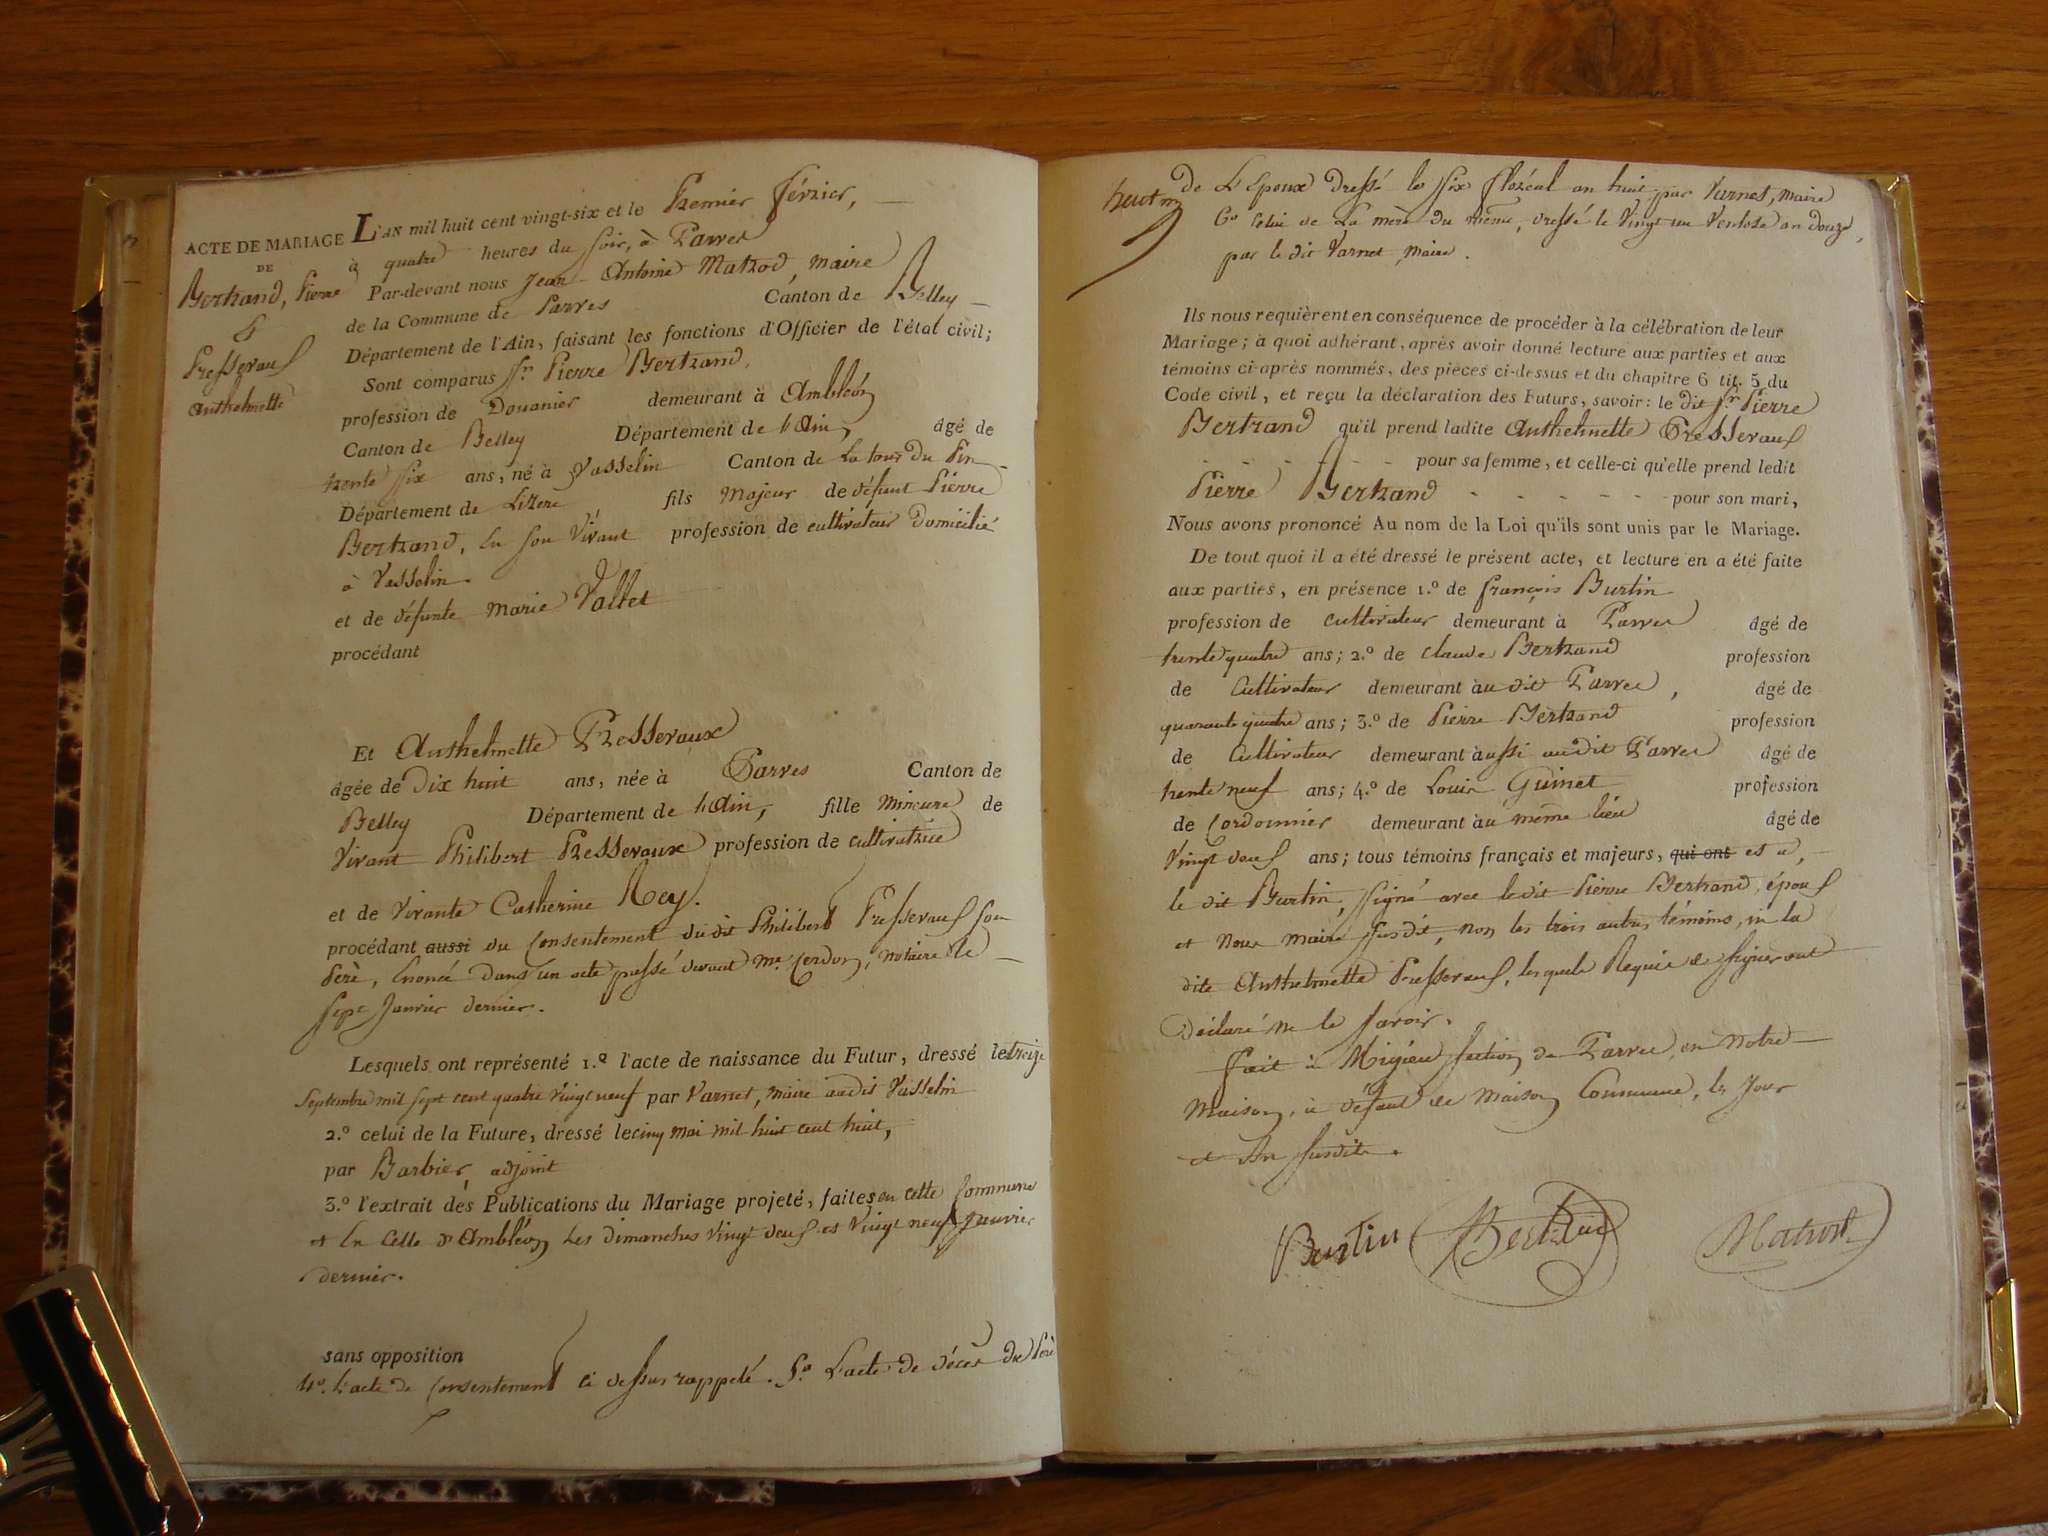 ACTE DE MARIAGE
DE
Bertrand, Pierre
&
Presseraux
Anthelmette
L'AN mil huit cent vingt-six et le Premier février,
à quatre heures du soir, à Parves
Par-devant nous Jean-Antoine Matrod, maire
de la Commune de Parves Canton de Belley
Département de l'Ain, faisant les fonctions d'Officier de l'état civil;
Sont comparus Sr. Pierre Bertrand,
profession de Douanier demeurant à Ambléon
Canton de Belley Département de l'Ain, âgé de
trente six ans, né à Vasselin Canton de La tour du Pin
Département de L'izere, fils Majeur de défunt Pierre
Bertrand, en son Vivant profession de cultivateur domicilié
à Vasselin.
et de défunte Marie Vallet
procédant
Et Anthelmette Presseraux
âgée de Dix huit ans, née à Parves Canton de
Belley Département de l'Ain, fille Mineure de
Vivant Philibert Presseraux profession de cultivatrice
et de Vivante Catherine Rey.
procédant aussi du Consentement dudit Philibert Presseraux son
Père, énoncé dans un acte passé devant Me. Cerdon, notaire le
sept Janvier dernier.
Lesquels ont représenté 1.º l'acte de naissance du Futur, dressé le treize
Septembre mil sept cent quatre vingt neuf par Varnet, maire audit Vasselin
2.º celui de la Future, dressé le cinq mai mil huit cent huit,
par Barbier, adjoint
3.º l'extrait des Publications du Mariage projeté, faites en cette Commune
et en Celle d'Ambléon les dimanches vingt deux et vingt neuf Janvier
dernier.
sans opposition
4º. L'acte de Consentement ci dessus rappelé. 5º. L'acte de décès du Père
de L'Epoux dressé le six floréal an huit par Varnet, maire
6º Celui de La mère du même, dressé le vingt un Ventose an Douze,
par le dit Varnet, Maire.
Ils nous requièrent en conséquence de procéder à la célébration de leur
Mariage; à quoi adhérant, après avoir donné lecture aux parties et aux
témoins ci-après nommés, des pièces ci-dessus et du chapitre 6 tit. 5 du
Code civil, et reçu la déclaration des Futurs, savoir: le dit Sr. Pierre
Bertrand qu'il prend ladite Anthelmette Presseraux
pour sa femme, et celle-ci qu'elle prend ledit
Pierre Bertrand pour son mari,
Nous avons prononcé Au nom de la Loi qu'ils sont unis par le Mariage.
De tout quoi il a été dressé le présent acte, et lecture en a été faite
aux parties, en présence 1.º de françois Burtin
profession de cultivateur demeurant à Parves âgé de
trente quatre ans; 2.º de claude Bertrand profession
de Cultivateur demeurant à au dit Parves, âgé de
quarante quatre ans; 3.º de Pierre Bertrand profession
de Cultivateur demeurant à aussi audit Parves âgé de
trente neuf ans; 4.º de Louis Guinet profession
de Cordonnier demeurant à au même lieu âgé de
Vingt deux ans; tous témoins français et majeurs, qui ont et a,
le dit Burtin, signé avec ledit Pierre Bertrand, époux
et Nous maire susdit, non les trois autres témoins, ni la
dite Anthelmette Presseraux, lesquels Requis de signer ont
Déclaré ne le savoir.
fait à Migieu section de Parves, en Notre
Maison, à défaut de Maison Commune, les Jour
et An susdits.
Burtin Bertrand Matrod